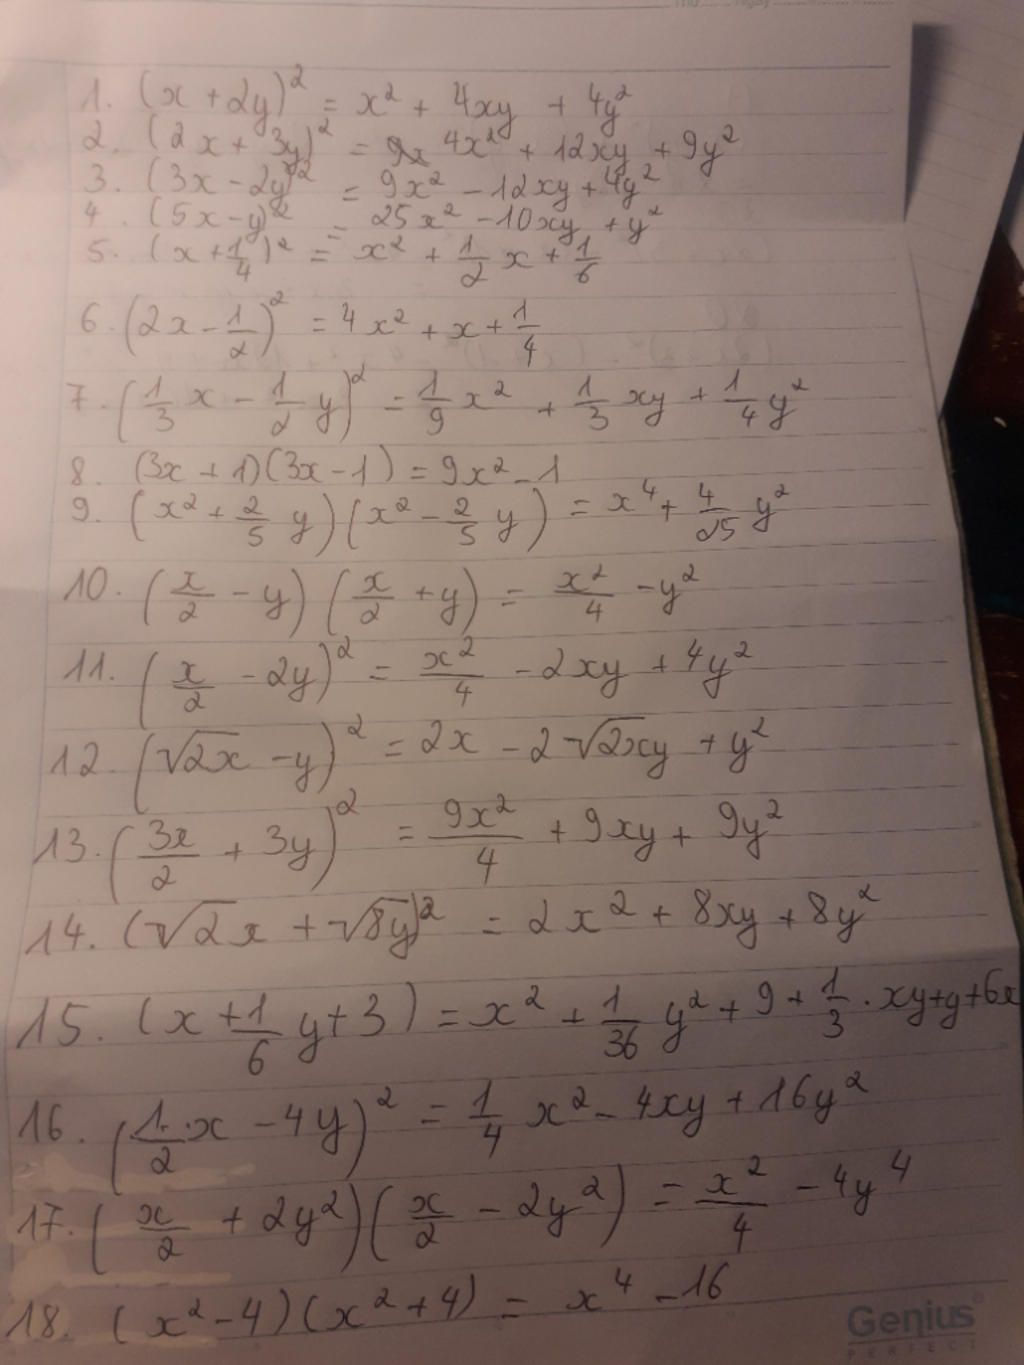 1. (x + 2y)² = x² + 4xy + 4y²
2. (2x + 3y)² = 4x² + 12xy + 9y²
3. (3x - 2y)² = 9x² - 12xy + 4y²
4. (5x - y)² = 25x² - 10xy + y²
5. (x + 1/4)² = x² + 1/2 x + 1/6
6. (2x - 1/2)² = 4x² + x + 1/4
7. (1/3 x - 1/2 y)² = 1/9 x² + 1/3 xy + 1/4 y²
8. (3x + 1)(3x - 1) = 9x² - 1
9. (x² + 2/5 y)(x² - 2/5 y) = x⁴ + 4/25 y²
10. (x/2 - y)(x/2 + y) = x²/4 - y²
11. (x/2 - 2y)² = x²/4 - 2xy + 4y²
12. (√2x - y)² = 2x - 2√2xy + y²
13. (3x/2 + 3y)² = 9x²/4 + 9xy + 9y²
14. (√2x + √8y)² = 2x² + 8xy + 8y²
15. (x + 1/6 y + 3) = x² + 1/36 y² + 9 + 1/3 · xy + y + 6x
16. (1/2 · x - 4y)² = 1/4 x² - 4xy + 16y²
17. (x/2 + 2y²)(x/2 - 2y²) = x²/4 - 4y⁴
18. (x² - 4)(x² + 4) = x⁴ - 16
Genius
PERFECT